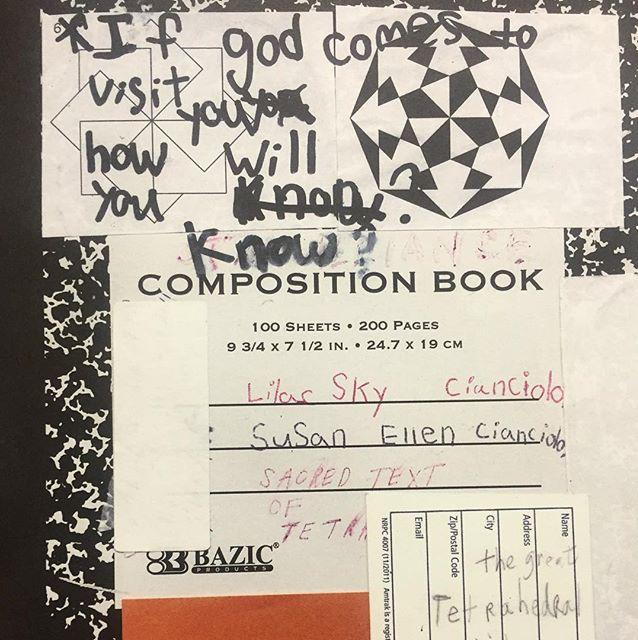 *If god comes to
visit you you
how will
you know?
know?
COMPOSITION BOOK
100 SHEETS • 200 PAGES
9 3/4 X 7 1/2 IN. • 24.7 X 19 CM
Lilac Sky Cianciolo
SuSan Ellen Cianciolo
SACRED TEXT
OF
TETRA
BAZIC
PRODUCTS
Name
Address
City
Zip/Postal Code
Email
NRPC 4007 (11/2011) Amtrak is a regist
the great
Tetrahedral